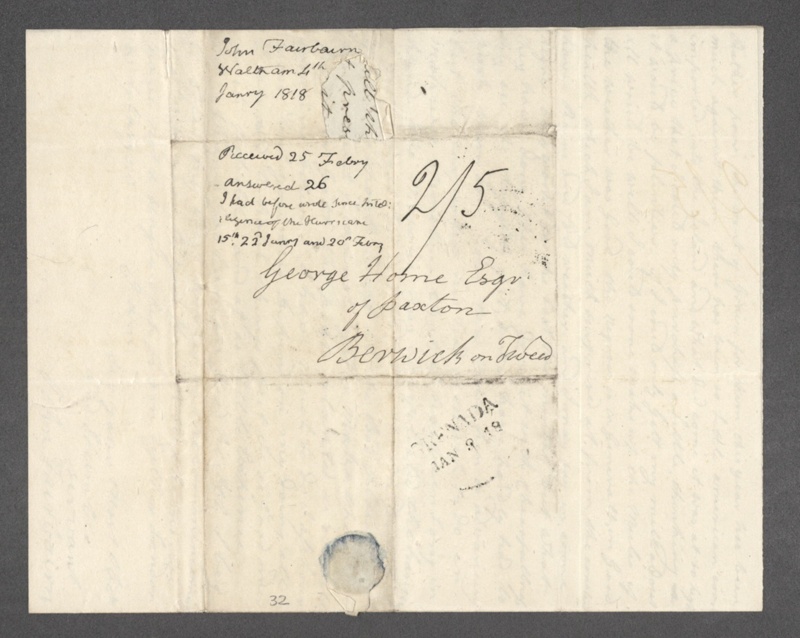 John Fairbairn
Waltham 4th
Janry 1818
Received 25 Febry
answered 26
I had before wrote since Intel:
ligence of the Hurricane
15th 22d Janry and 20th Febry
2/5
George Home Esqr
of Paxton
Berwick on Tweed
GRENADA
JAN 8 18
32